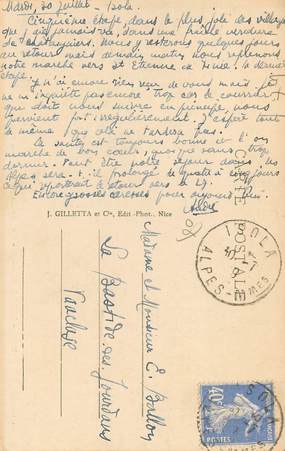 Mardi, 20 Juillet - Isola.
Cinquième étape, dans le plus joli des villages
que j'ai jamais vu, dans une fraîche verdure
de châtaigniers. Nous y resterons quelques jours
au retour, mais demain matin, nous reprenons
notre marche vers St Etienne de Tinée, la dernière
étape.
Je n'ai encore rien reçu de vous mais je
ne m'inquiète pas encore trop car le courrier
que doit nous suivre nous
parvient fort irrégulièrement. J'espère tout
de même que cela ne tardera pas.
La santé est toujours bonne et l'on
marche de bon cœur, quoique sans trop
dormir. Peut être notre séjour dans les
Alpes sera-t-il prolongé de quelques jours
ce qui porterait le retour vers le 27.
Encore grosses caresses pour aujourd'hui.
J. GILLETTA et Cie, Edit.-Phot., Nice
CARTE POSTALE
Madame et Monsieur E.
La Bastide des Jourdans
Vaucluse
ISOLA
ALPES-MMES
40c
POSTES